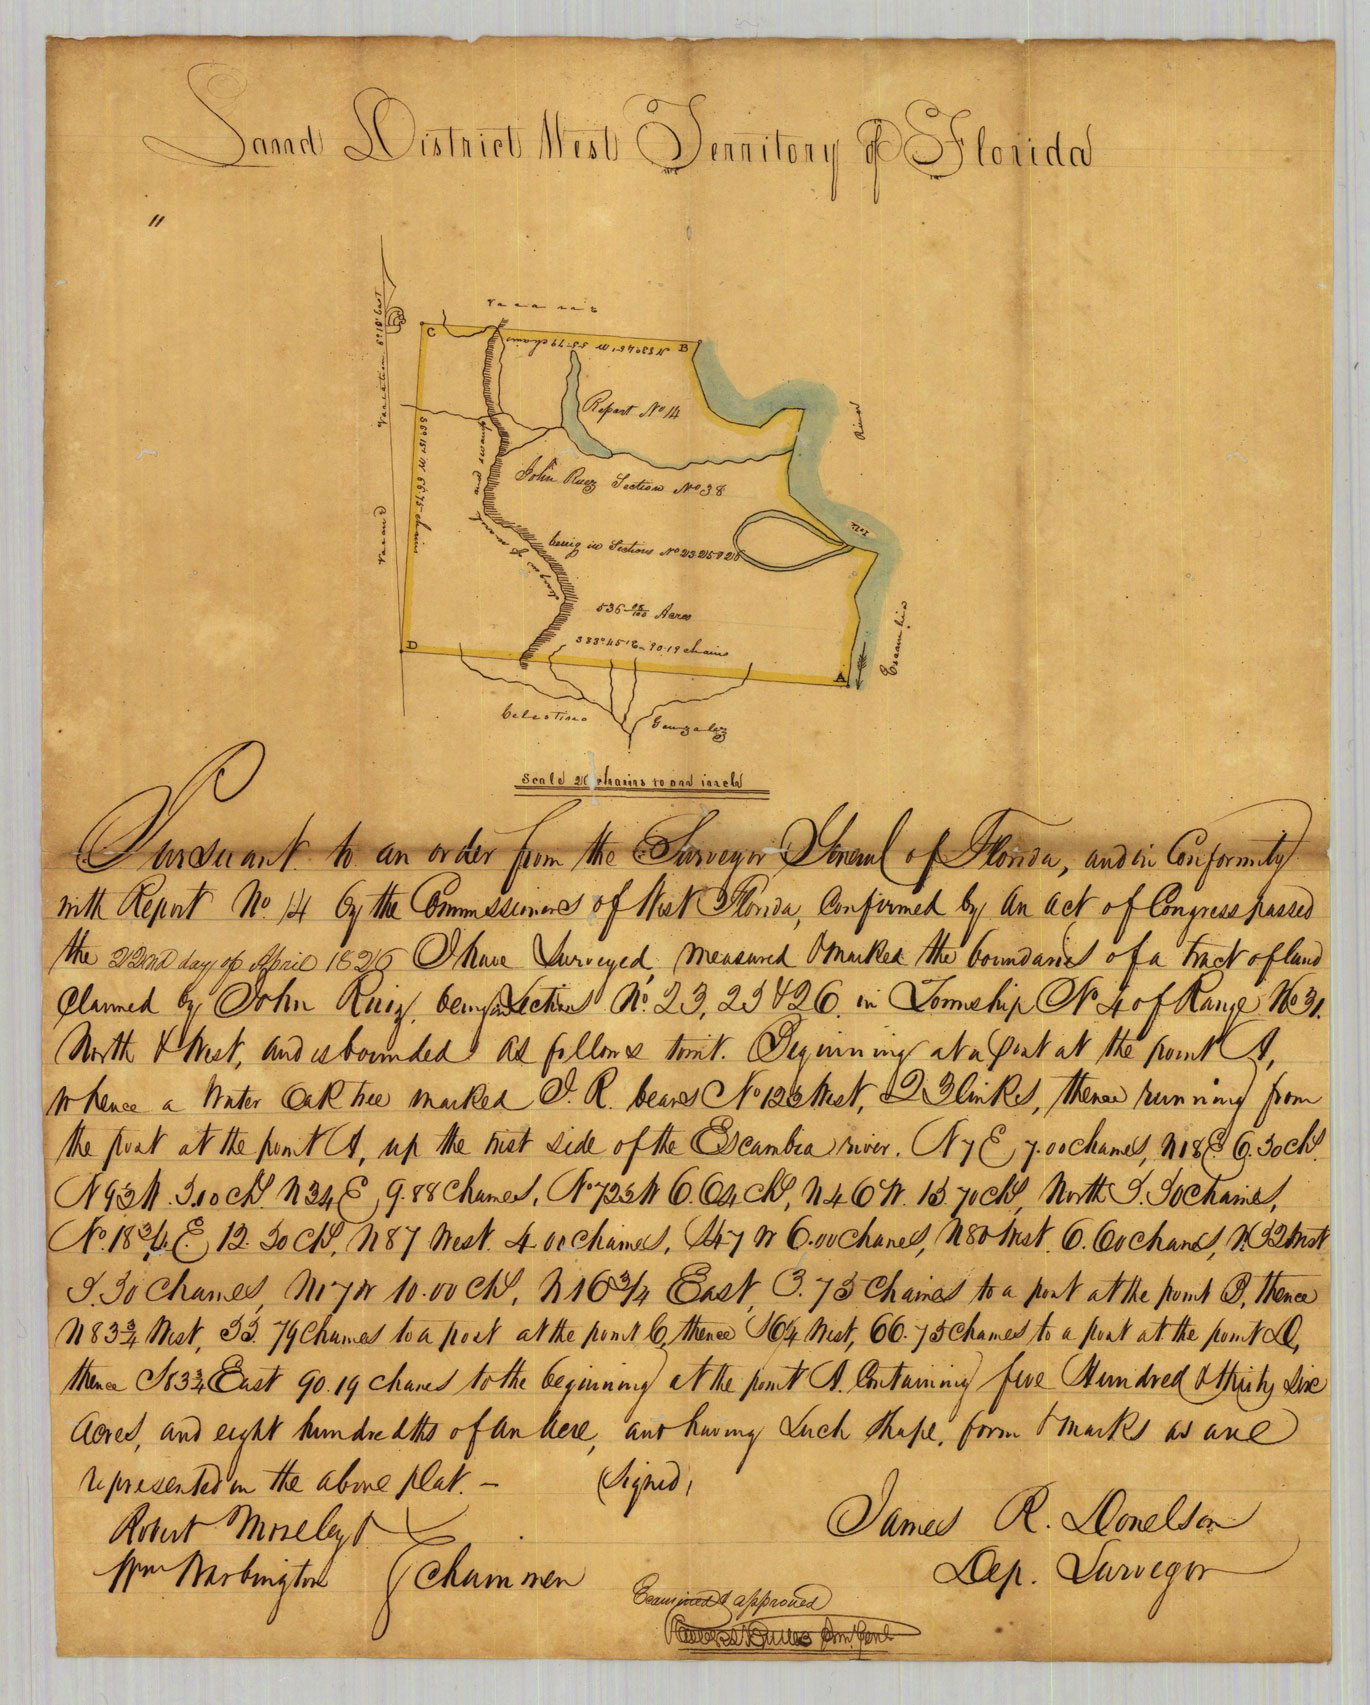 Land District West Territory of Florida
"
Vacant
Variation 6° 18' East
C
B
N 83° 45' W 55.79 chains
Report No 14
River
S 6° 15' W 66.75 chains
John Ruiz Section No 38
being in Sections No 23 25 & 26
Vacant
536 08/100 Acres
S 83° 45' E 90.19 chains
Escambia
D
A
Celestino Gonzalez
Scale 20 chains to one inch
Pursuant to an order from the Surveyor General of Florida, and in Conformity
with Report No 14 by the Commissioners of West Florida, Confirmed by An act of Congress passed
the 22nd day of April 1826 I have Surveyed, measured & marked the boundaries of a tract of land
Claimed by John Ruiz, being in Sections No. 23, 25 & 26 in Township No 4 of Range No 31.
North & West, and is bounded as follows towit. Beginning at a Post at the point A,
whence a Water Oak tree marked J. R. bears No 12 West, 23 links, thence running from
the post at the point A, up the west side of the Escambia river. N 7 E 7.00 chaines, N 18 E 6.50 chs.
N 34 E 9.88 Chaines, 6.64 chs, N 46 W. 15 70 chs, North 5.50 chaines,
No. 18 3/4 E. 12.50 chs, N 87 West. 4.00 chaines, S 47 W 6.00 chanes, N 80 West. 6.60 chanes, N. 52 West
5.50 chaines, N 17 W 10.00 chs, N 16 3/4 East, 3.75 Chaines to a post at the point B, thence
N 83 3/4 West, 55.79 Chaines to a post at the point C, thence S 6 1/4 West, 66.75 chaines to a post at the point D,
thence S 83 3/4 East 90.19 chanes to the beginning at the point A. Containing five Hundred & thirty Six
Acres, and eight hundredths of an Acre, and having Such Shape, form & marks as are
represented in the above plat. — (Signed)
Robert Moseley
James R. Donelson
Wm Warbington } Chainmen
Dep. Surveyor
Examined & approved
Robert Butler Surv. Genl.